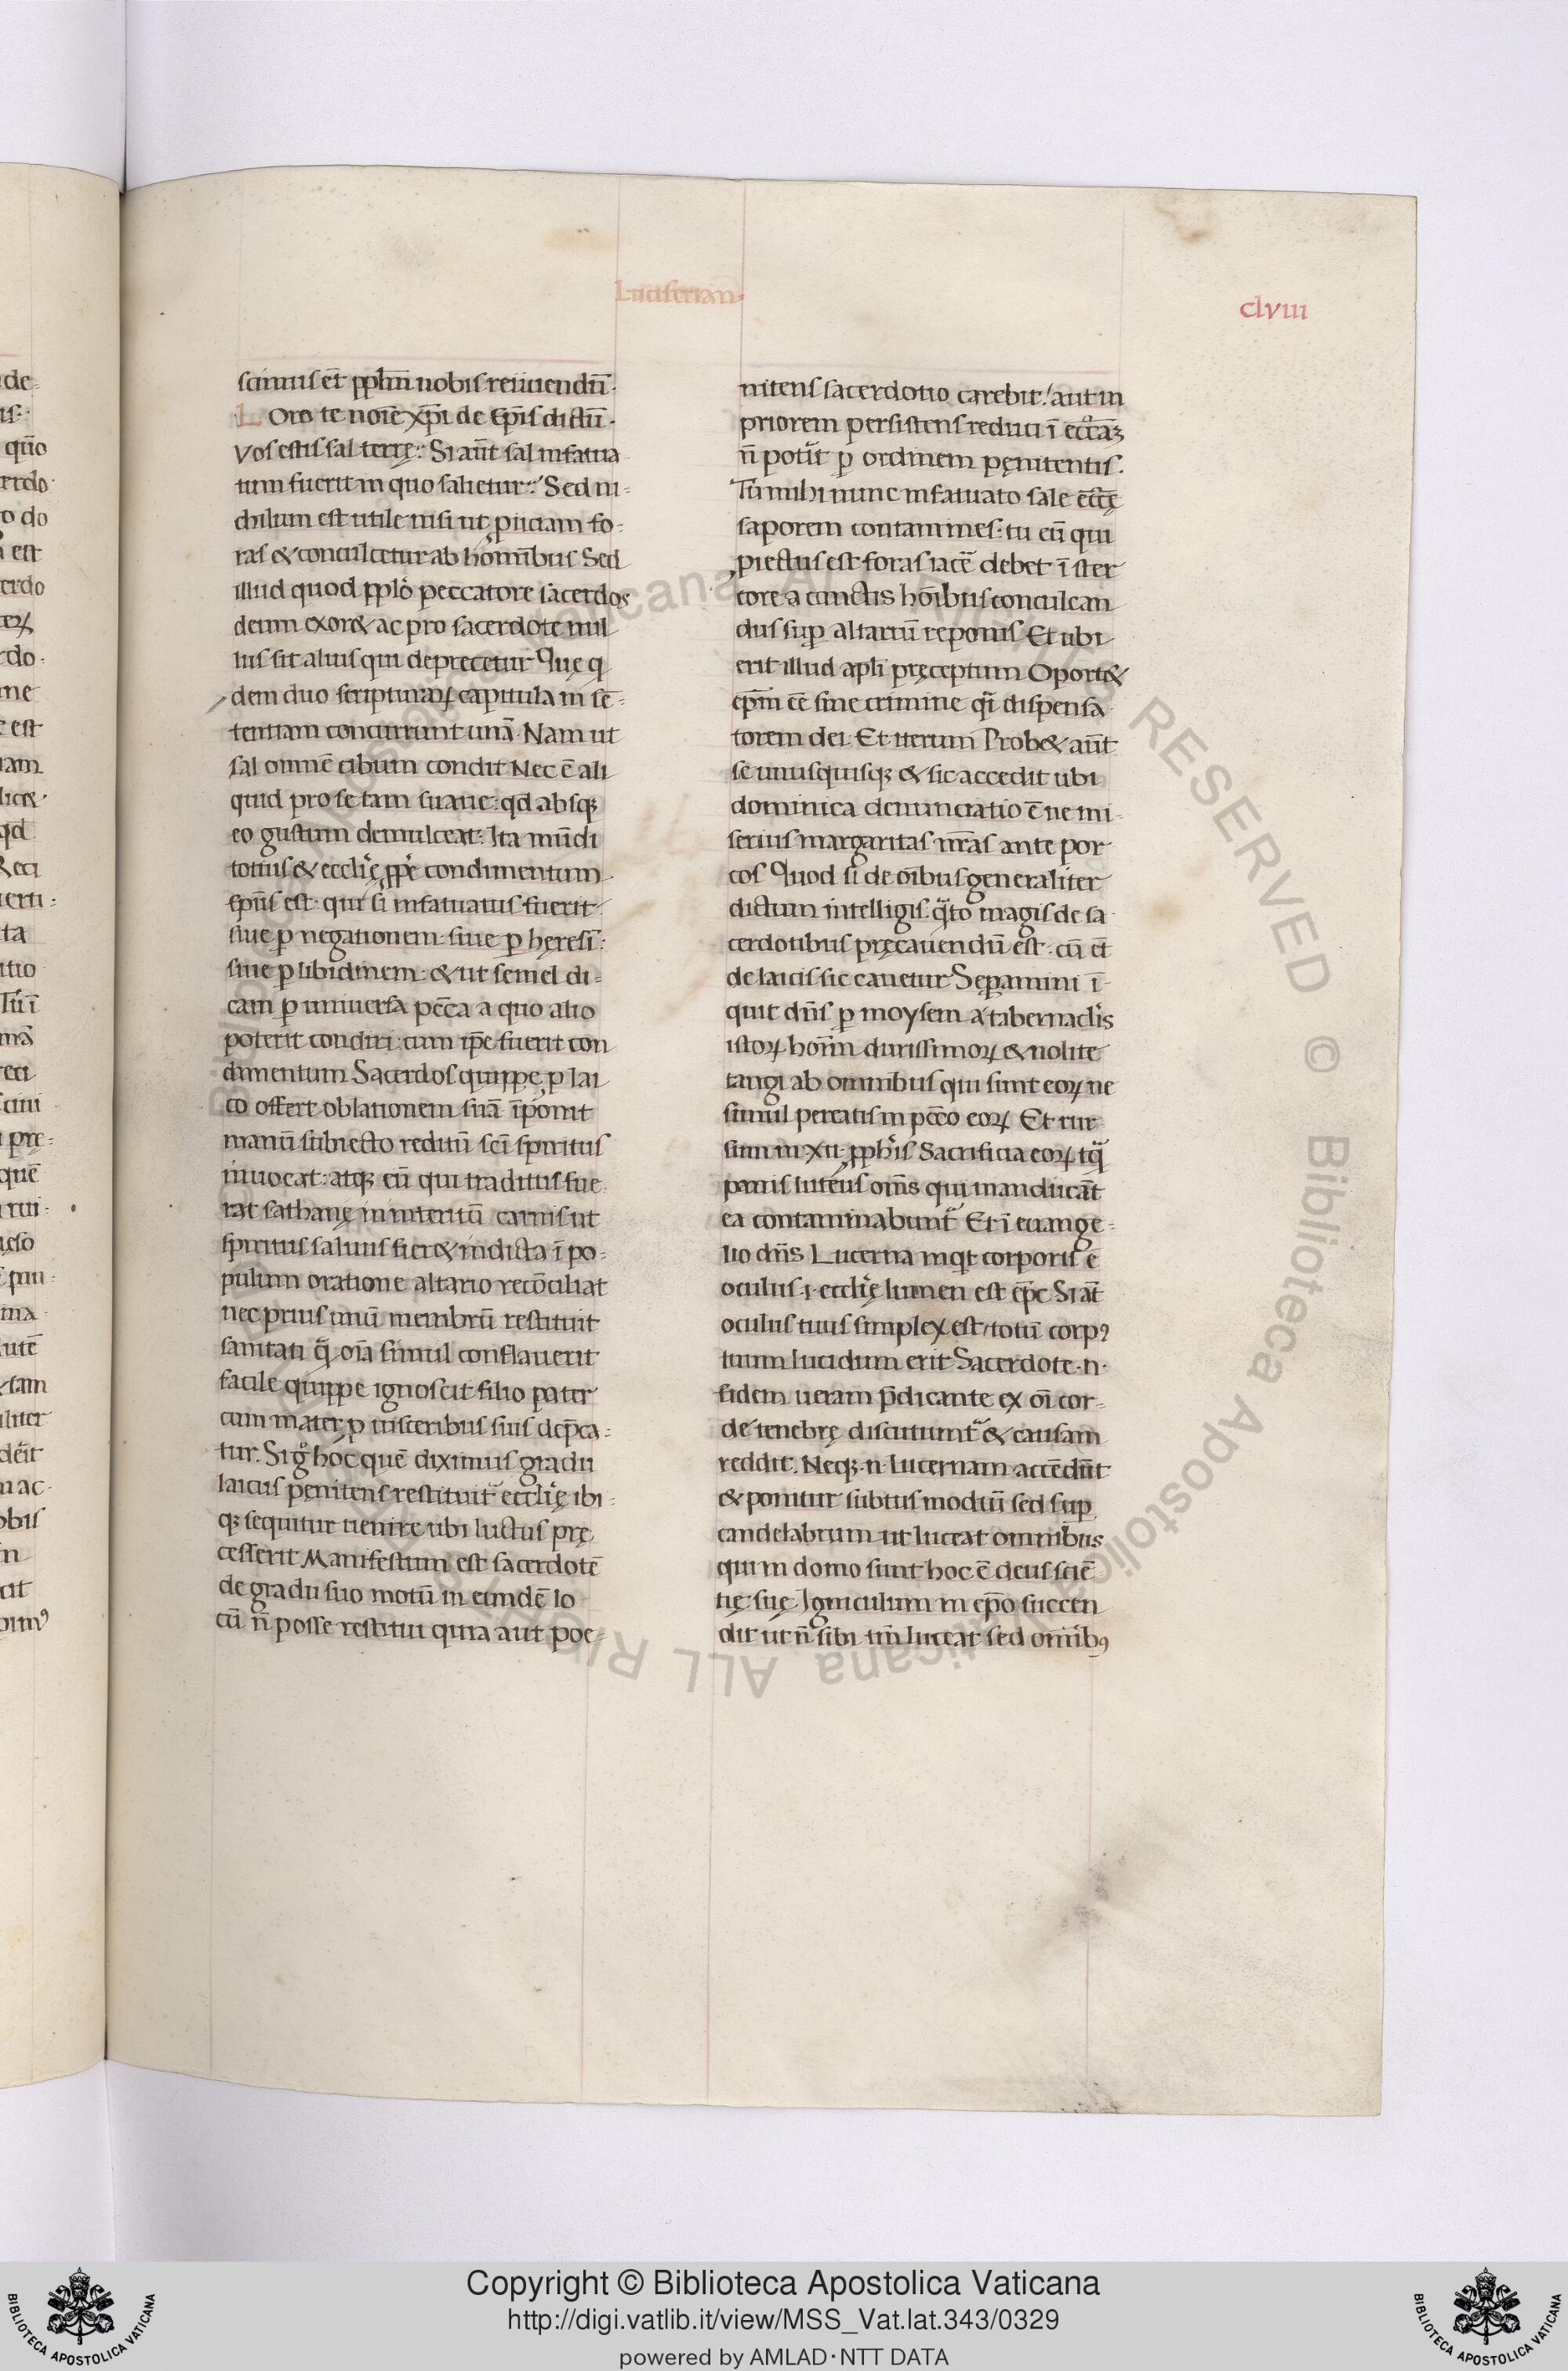 Luciferian·
clviii
scimus et̄ ꝓplm̄ nobis reiiciendū·
LOro te noīe xp̄i de ep̄is dictū·
vos estis sal terrę: Si aūt sal infatua
tum fuerit in quo salietur: Sed ni-
chilum est utile nisi ut ꝓiiciam fo-
ras & conculcetur ab homībus Sed
illud quod ꝓplo peccatore sacerdos
deum exor& ac pro sacerdote nul
lus sit alius qui deprecetur Quę q
dem duo scripturaꝝ capitula in sē-
tentiam concurrunt unā· Nam ut
sal omnē cibum condit Nec ē ali
quid pro se tam suaue: qd absqꝫ
eo gustum demulceat: Ita mūdi
totius & ecclię ꝓpe condimentum
Ep̄us est· qui si infatuatus fuerit
siue ꝑ negationem· siue ꝑ hęresī:
siue ꝑ libidinem: & ut semel di-
cam ꝑ uniuersa pcc̄a a quo alio
poterit condiri: cum ip̄e fuerit con
dimentum Sacerdos quippe ꝓ lai
co offert oblationem suā īponit
manū subiecto reditū sc̄i spiritus
inuocat: atqꝫ eū qui traditus fue
rat sathanę in interitū carnis ut
spiritus saluus fier& indicta ī po-
pulum oratione altario recōciliat
nec prius unū membrū restituit
sanitati q̄ oīa simul conflauerit
facile quippe ignoscit filio pater
cum mater ꝓ uisceribus suis dep̄ca-
tur. Sig° hoc quē diximus gradu
laicus pęnitens restituit ecclię ibi-
qꝫ sequitur uenire ubi luctus prę
cesserit Manifestum est sacerdotē
de gradu suo motū in eundē lo
cū n̄ posse restitui quia aut poe-
nitens sacerdotio carebit: aut in
priorem persistens reduci ī ecc̄aꝫ
n̄ potit ꝑ ordinem pęnitentis.
Tū mihi nunc infatuato sale ecc̄ę
saporem contamines: tu eū qui
ꝓiectus est foras iacē debet ī ster
core a cunctis hōibus conculcan
dus suꝑ altariū reponis Et ubi
erit illud apli pręceptum Oport&
ep̄m eē sine crimine qi dispensa
torem dei· Et iterum Prob& aūt
se unusquisqꝫ & sic accedit ubi
dominica denunciatio ē ne mi-
serius margaritas nr̄as ante por
cos Quod si de oībus generaliter
dictum intelligis: qto magis de sa
cerdotibus pręcauendū est· cū et̄
de laicis sic cauetur Seꝑamini ī-
quit dn̄s ꝑ moysem a tabernaclis
istoꝝ homīn durissimoꝝ & nolite
tangi ab omnibus qui sunt eoꝝ ne
simul pereatis in pcc̄o eoꝝ Et rur
sum in·xii·ꝓphis Sacrificia eoꝝ tq̄
panis luteus om̄s qui manducāt
ea contaminabunt Et ī euange-
lio dn̄s Lucerna inqt corporis ē
oculus·i·ecclię lumen est ep̄c Si at̄
oculus tuus simplex est/totū corpꝰ
tuum lucidum erit Sacerdote·n·
fidem ueram p̄dicante ex oī cor-
de tenebrę discutiunt & causam
reddit. Neqꝫ·n·lucernam accēdūt
& ponitur subtus modiū sed suꝑ
candelabrum ut luceat omnibus
qui in domo sunt hoc ē deus sciē
tię suę Igniculum in ep̄o succen
dit ut n̄ sibi tm̄ luceat sed omibꝰ
Copyright © Biblioteca Apostolica Vaticana
http://digi.vatlib.it/view/MSS_Vat.lat.343/0329
powered by AMLAD·NTT DATA
BIBLIOTECA APOSTOLICA VATICANA
BIBLIOTECA APOSTOLICA VATICANA